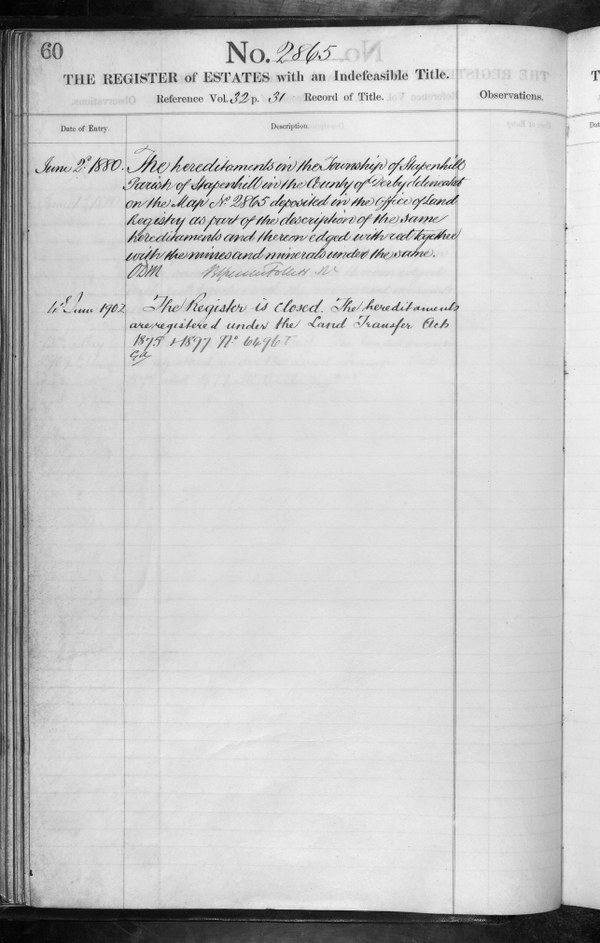 60
No. 2865
THE REGISTER of ESTATES with an Indefeasible Title.
Reference Vol. 32 p. 31 Record of Title.
Observations.
Date of Entry.
Description.
June 2d 1880. The hereditaments in the Township of Stapenhill
Parish of Stapenhill in the County of Derby delineated
on the Map No 2865 deposited in the Office of Land
Registry as part of the description of the same
hereditaments and thereon edged with red together
with the mines and minerals under the same.
June 1902 The Register is closed. The hereditaments
are registered under the Land Transfer Acts
1875 & 1897 No 6496